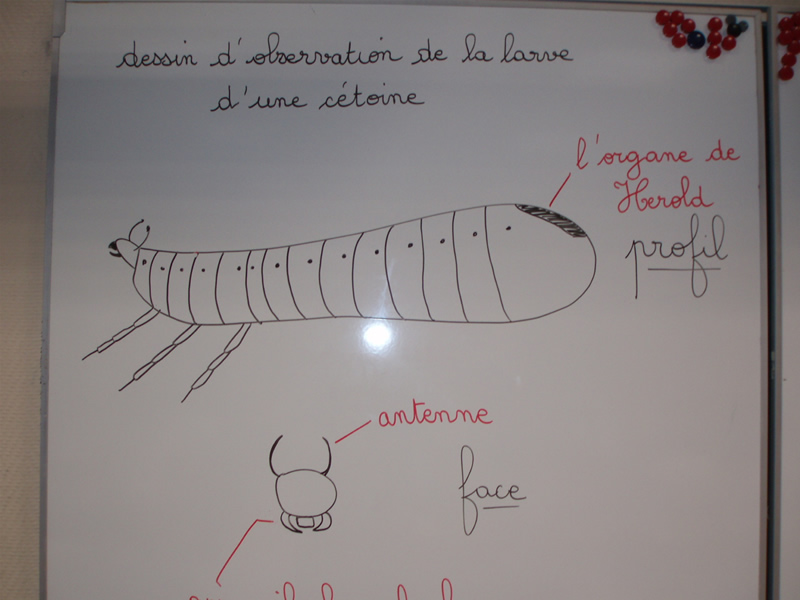 dessin d'observation de la larve
d'une cétoine
l'organe de
Herold
profil
antenne
face